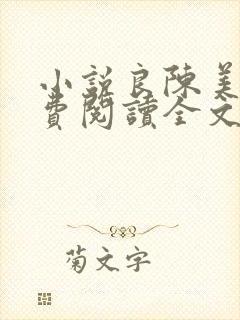 小説良陳美
費閱讀全文
菊文字